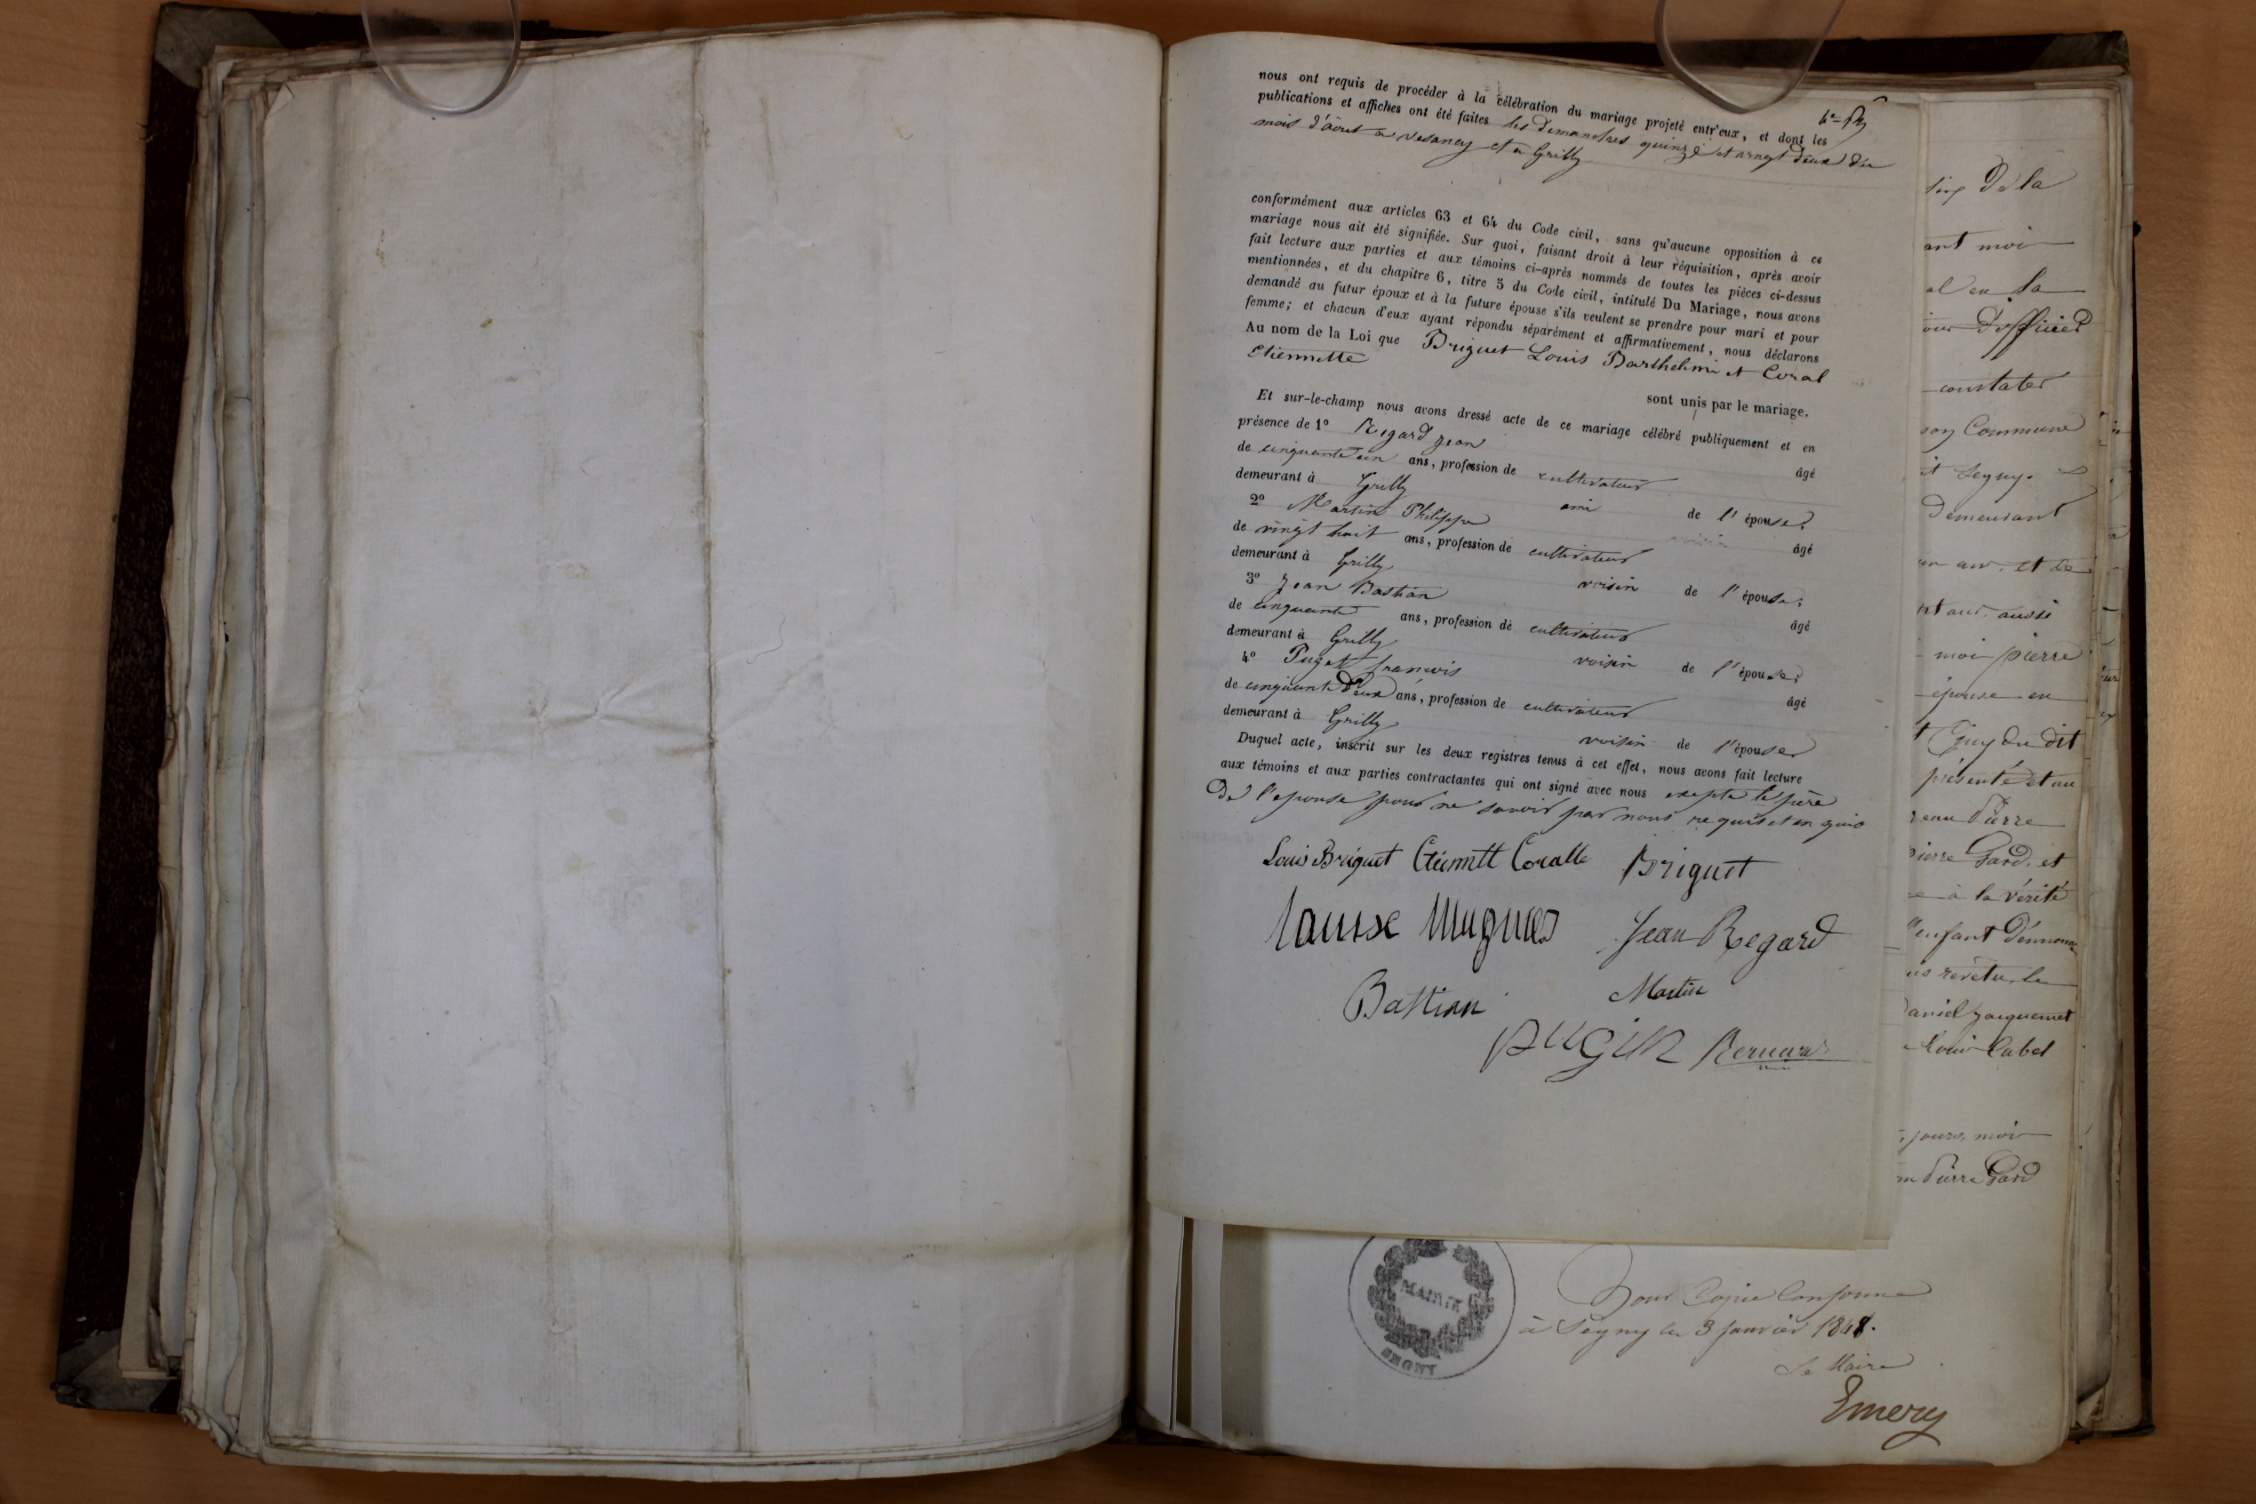 nous ont requis de procéder à la célébration du mariage projeté entr'eux, et dont les
publications et affiches ont été faites les dimanches quinze et vingt deux du
mois d'août a vesancy et a Grilly
conformément aux articles 63 et 64 du Code civil, sans qu'aucune opposition à ce
mariage nous ait été signifiée. Sur quoi, faisant droit à leur réquisition, après avoir
fait lecture aux parties et aux témoins ci-après nommés de toutes les pièces ci-dessus
mentionnées, et du chapitre 6, titre 5 du Code civil, intitulé Du Mariage, nous avons
demandé au futur époux et à la future épouse s'ils veulent se prendre pour mari et pour
femme; et chacun d'eux ayant répondu séparément et affirmativement, nous déclarons
Au nom de la Loi que Briguet Louis Barthelmi et Coral
Etiennette
sont unis par le mariage.
Et sur-le-champ nous avons dressé acte de ce mariage célébré publiquement et en
présence de 1º Regard Jean
âgé
de cinquante un ans, profession de cultivateur
demeurant à Grilly
ami de l'épouse;
2º Martin Philippe
âgé
de vingt huit ans, profession de cultivateur
demeurant à Grilly
voisin de l'épouse;
3º Jean Bastian
âgé
de cinquante ans, profession de cultivateur
demeurant à Grilly
voisin de l'épouse;
4º Puget francois
âgé
de cinquante deux ans, profession de cultivateur
demeurant à Grilly
voisin de l'épouse
Duquel acte, inscrit sur les deux registres tenus à cet effet, nous avons fait lecture
aux témoins et aux parties contractantes qui ont signé avec nous excepte le père
De l'epouse pour ne savoir par nous requis
Louis Briguet Etiennette Coralle Briguet
Jean Regard
Bastian Martin
PUGIN Bernard
Sing De la
ant moi
al en la
d'officier
constater
son Commune
it Segny.
Demeurant
an. et de
aussi
moi pierre
épouse en
t Guy du dit
présenté et au
Pierre
pierre Gard. et
à la vérité
enfant dénommé
revetu le
Daniel Jacquemet
Louis Cabet
jours, moi
Pierre Gard
MAIRIE
SEGNY
Pour Copie Conforme
à Segny le 3 janvier 1848.
Le Maire
Emery